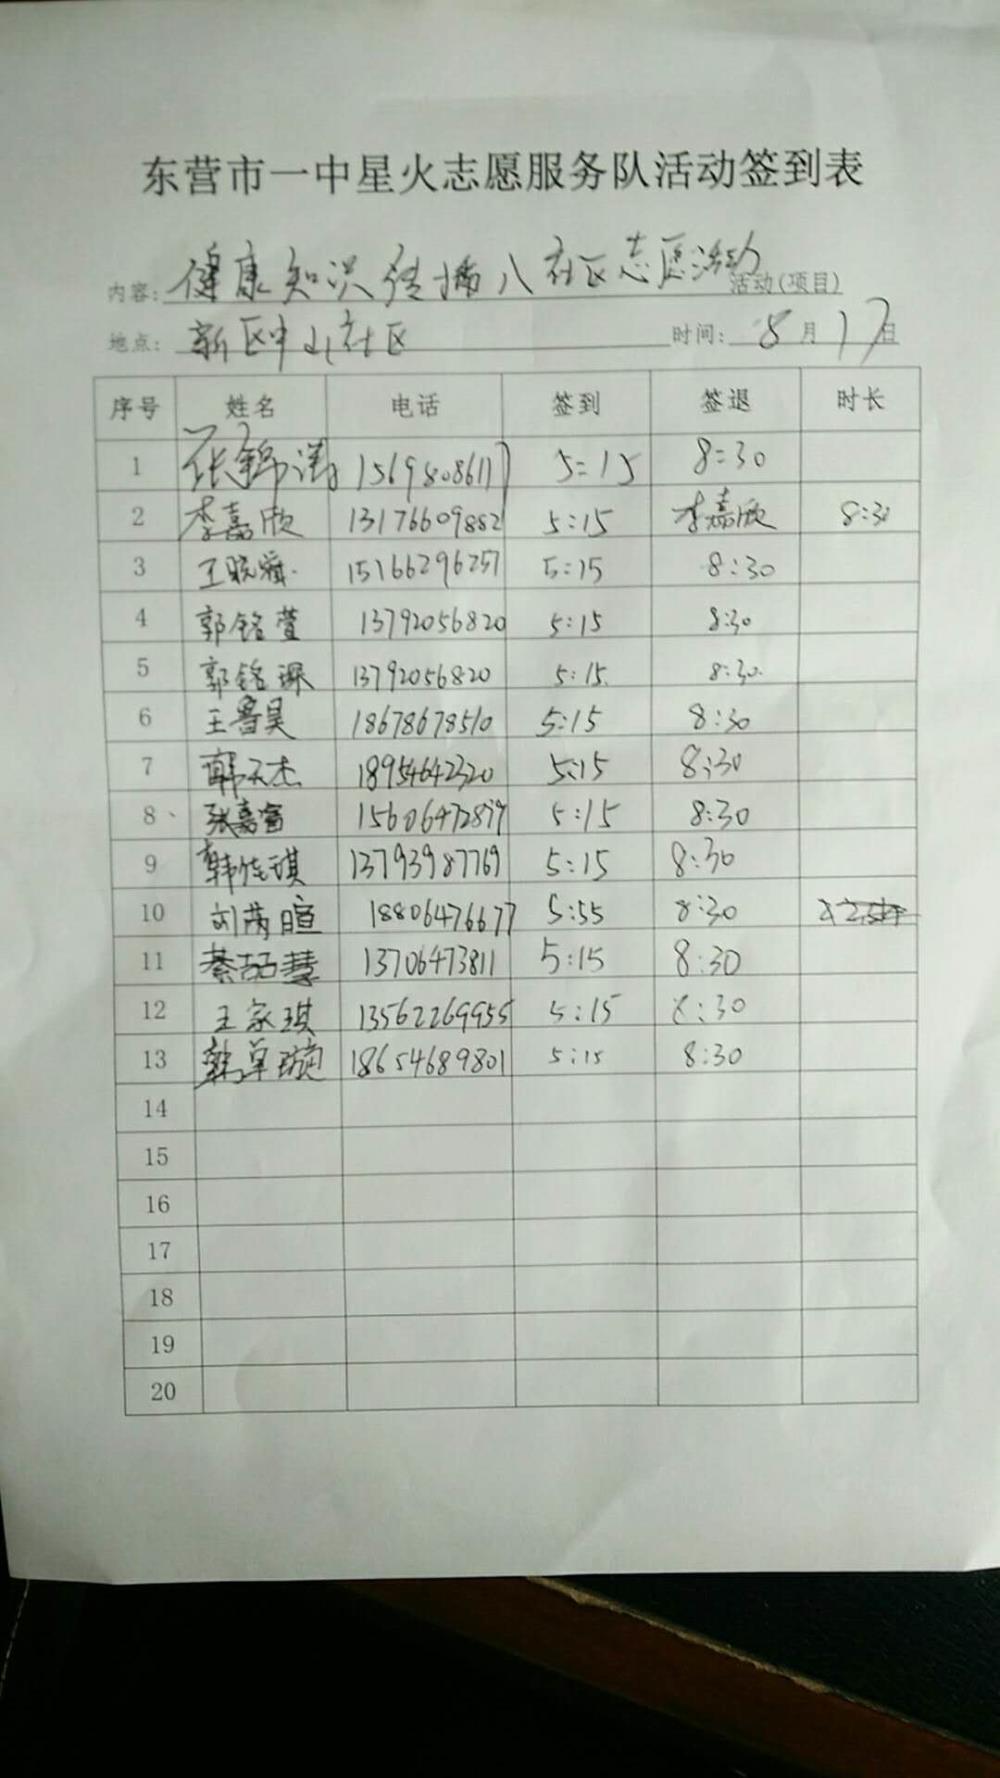 东营市一中星火志愿服务队活动签到表
内容: 健康知识传播入社区志愿活动 活动(项目)
地点: 新区中山社区 时间: 8月17日
序号 姓名 电话 签到 签退 时长
1 张锦涛 15698086117 5:15 8:30
2 李嘉欣 13176609882 5:15 李嘉欣 8:30
3 王晓 15166296257 5:15 8:30
4 郭铭萱 13792056820 5:15 8:30
5 郭铭琛 13792056820 5:15 8:30
6 王鲁昊 18678678510 5:15 8:30
7 韩天杰 18954642320 5:15 8:30
8 张嘉富 15606472879 5:15 8:30
9 韩佳琪 13793987769 5:15 8:30
10 刘芮暄 18806476677 5:55 8:30
11 綦喆慧 13706473811 5:15 8:30
12 王家琪 13562269955 5:15 8:30
13 韩卓璇 18654689801 5:15 8:30
14
15
16
17
18
19
20